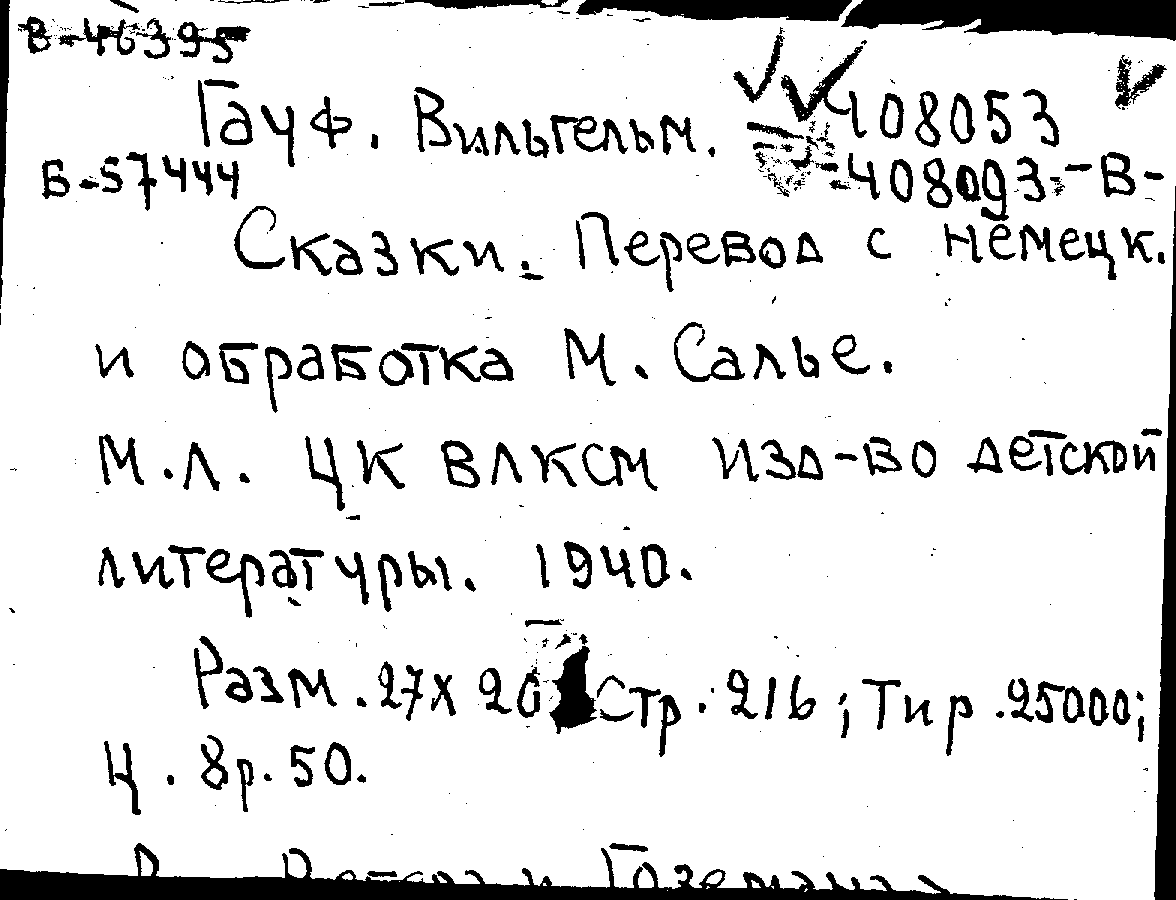 В-46395
Гауф. Вильгельм. 408053
Б-57444 -408093--В-
Сказки. Перевод с немецк.
и обработка М. Салье.
М.Л. ЦК ВЛКСМ изд-во детской
литературы. 1940.
Разм. 27х20 Стр. 216; Тир. 25000;
Ц. 8р. 50.